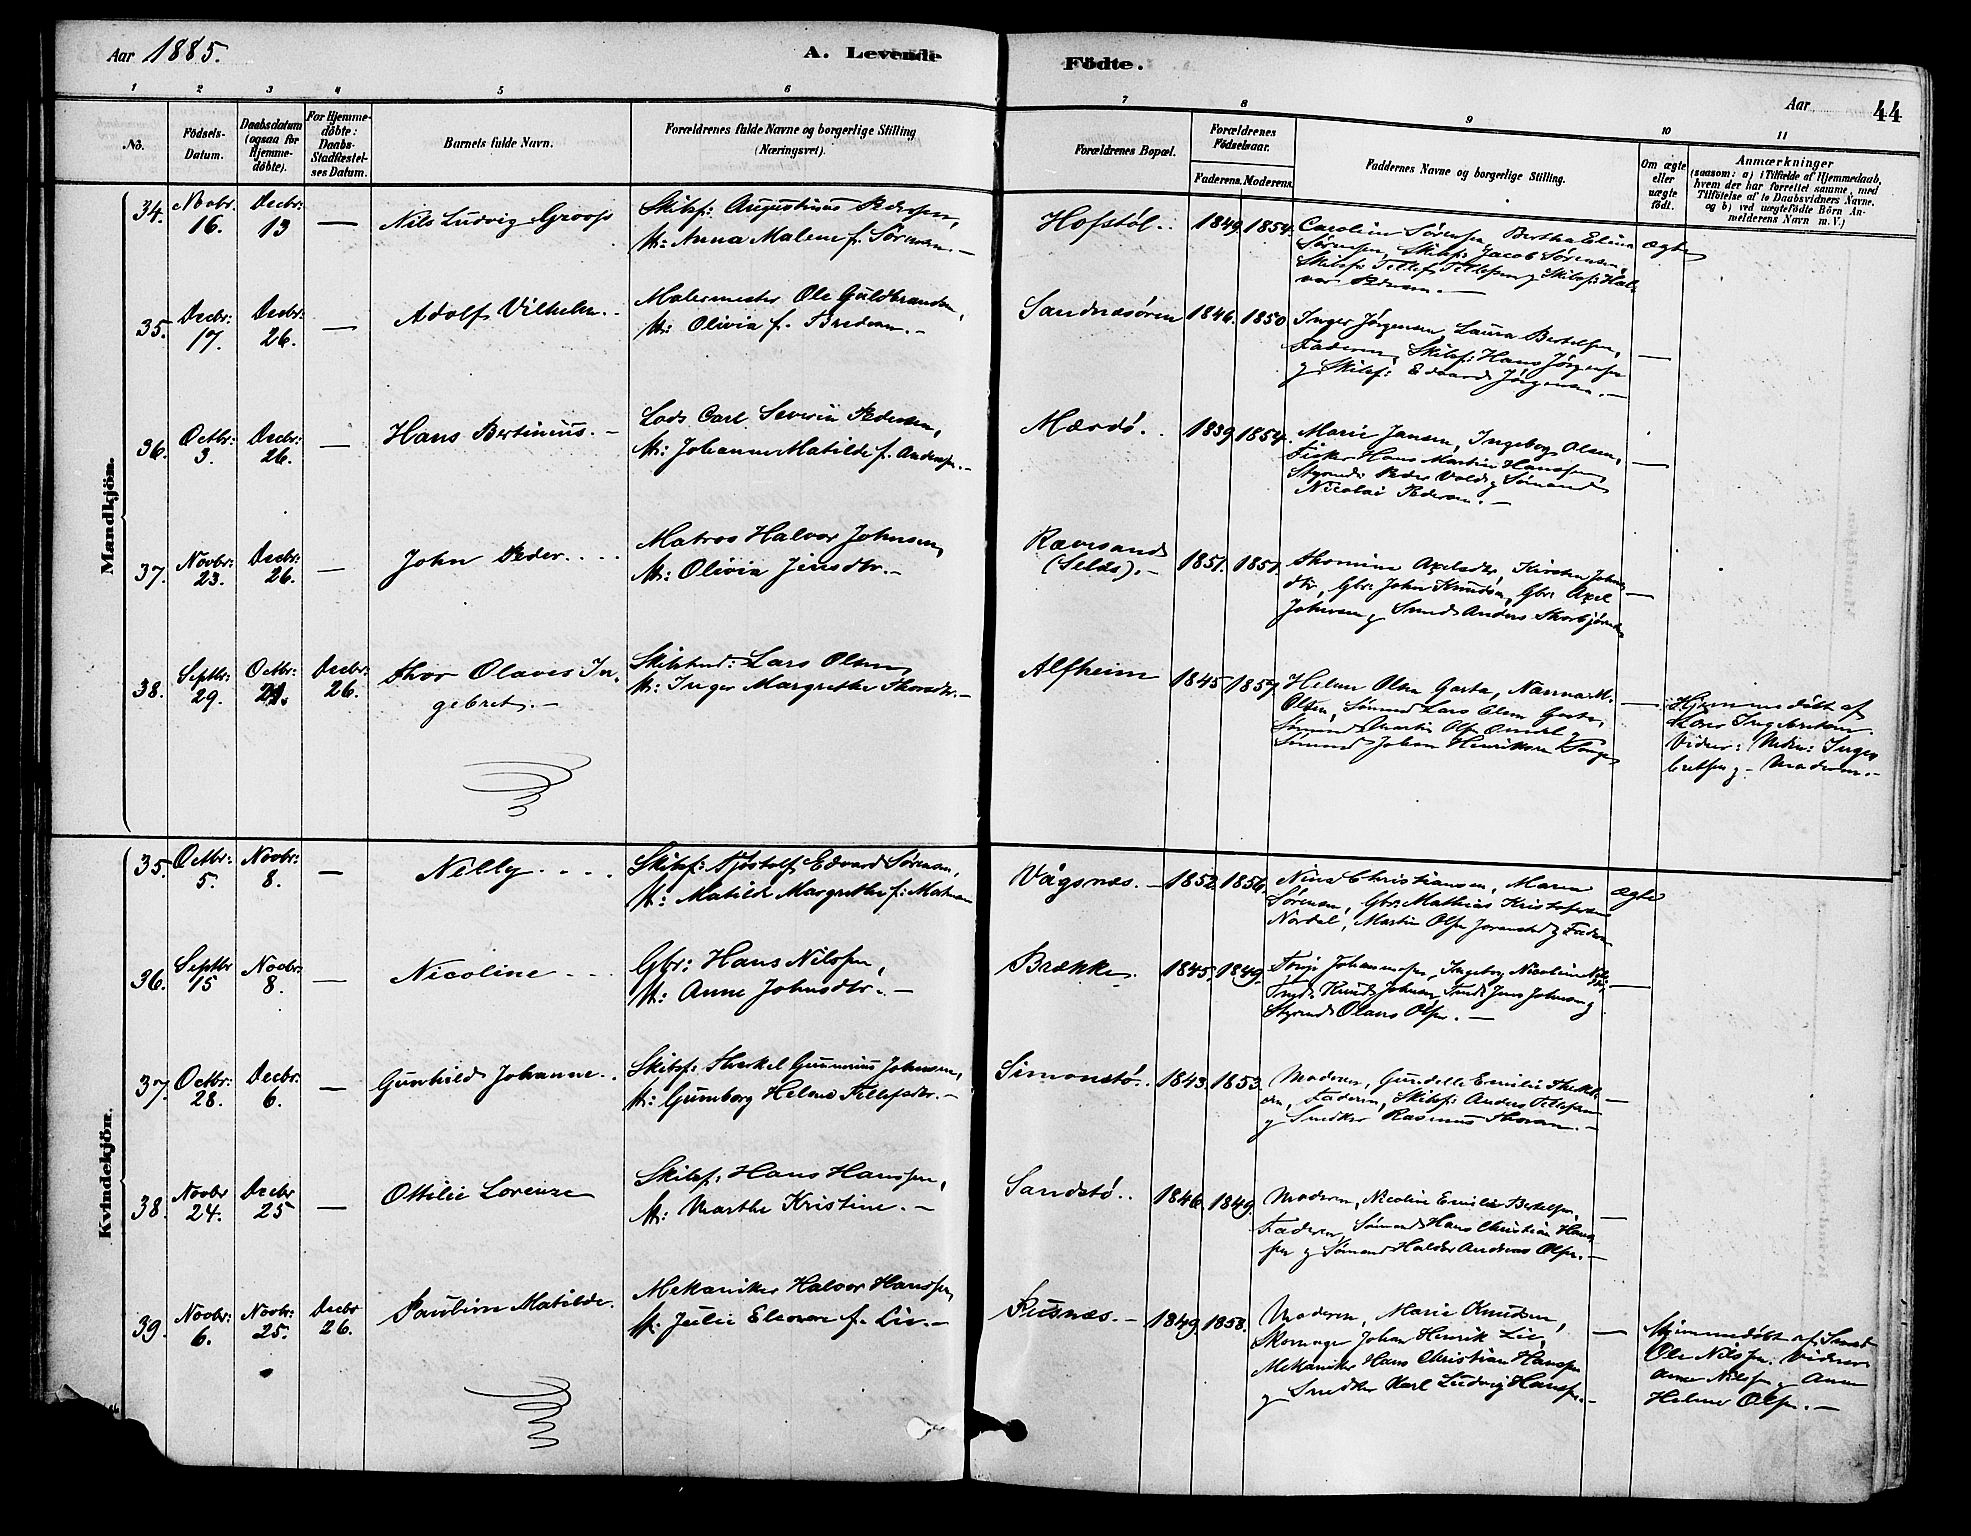 Aar 1885.
A. Levende
Födte.
Aar
44
1 2 3 4 5 6 7 8 9 10 11
No.
Födsels-
Datum.
Daabsdatum
(ogsaa for
Hjemme-
döbte).
For Hjemme-
döbte:
Daabs-
Stadfæstel-
ses Datum.
Barnets fulde Navn.
Forældrenes fulde Navne og borgerlige Stilling
(Næringsvei).
Forældrenes Bopæl.
Forældrenes
Födselsaar.
Faderens. Moderens.
Faddernes Navne og borgerlige Stilling.
Om ægte
eller
uægte
födt.
Anmærkninger
(saasom: a) i Tilfælde af Hjemmedaab,
hvem der har forrettet samme, med
Tilföielse af to Daabsvidners Navne,
og b) ved uægtefödte Börn An-
melderens Navn m. V.)
Mandkjön.
34. Novbr. 16. Decbr: 13 —
Nils Ludvig Groos
Skibsf: Augustinus Pedersen,
H: Anna Malene f. Sörensen. —
Hofstöl.. 1849. 1854.
Caroline Sørensen, Bertha Elina
Sørensen, Skibsf: Jacob Sørensen,
Skibsf: Tellef Tellefsen og Skibsf: Hal-
vor Pedersen. —
ægte
35. Decbr: 17. Decbr: 26. —
Adolf Vilhelm..
Malermester Ole Guldbrandsen,
H: Olivia f. Bredesen. —
Sandnæsören 1846. 1850
Inger Jørgensen, Laura Bertelsen,
Faderen, Skibsf: Hans Jørgensen
og Skibsf: Edvard Jørgensen. —
—
36. Octbr: 3. Decbr: 26. —
Hans Bertinius. —
Lods Carl Severin Pedersen,
H: Johanne Matilde f. Andersen. —
Mærdö. . 1839. 1854.
Marie Jansen, Ingeborg Olsen,
Fisker Hans Martin Hanssen,
Styrmd: Peder Vold og Sømand
Nicolai Pedersen. —
—
37. Novbr: 23. Decbr: 26. —
John Peder....
Matros Halvor Johnsen,
H: Olivia Jensdtr. —
Rævesand
(Selds). — 1851. 1851.
Thomine Axelsdtr, Kirsten Johns-
dtr, Gbr: John Knudsen, Gbr: Axel
Johnsen og Smed Anders Thorbjørnsen
—
38. Septbr: 29. Octbr: 21. Decbr: 26.
Thor Olaves In-
gebret. —
Skibstmd: Lars Olsen,
H: Inger Margrethe Thorsdtr. —
Alfheim 1845 1857
Helene Olsen Garta, Nanna M.
Olsen, Sømand Lars Olsen Garta,
Sømand Martin Olsen
Sømand Johan Henriksen
—
Hjemmedöbt af
Lars Ingebretsen.
Vidner: Mdm: Inge-
bretsen og Moderen. —
Kvindekjön.
35. Octbr: 5. Novbr: 8. —
Nelly....
Skibsf: Njöstolf Edvard Sørensen,
H: Matilde Margrethe f.
Vågsnæs. — 1852. 1856.
Nina Christiansen, Maren
Sørensen, Gbr: Mathias Kristofersen
Nordal, Martin Olsen og Faderen
ægte
36. Septbr 15 Novbr: 8. —
Nicoline...
Gbr: Hans Nilssen,
H: Anne Johnsdtr. —
Brække. 1845. 1849.
Johannessen, Ingeborg Nicoline
Knud Johnsen, Jens Johnsen og
Styrmd: Olaus Olsen. —
—
37. Octbr: 28. Decbr: 6. —
Gunhild Johanne..
Skibsf: Therkel Gunnerius Johnsen,
H: Gumborg Helene Tellefsdtr. —
Simonstö.. 1843. 1853.
Moderen, Gundelle Emilie
Faderen, Skibsf: Anders Tellefsen
og Snedker Rasmus Thorsen. —
—
38. Novbr 24. Decbr 25 —
Ottilie Lorenze
Skibsf: Hans Hanssen,
H: Marthe Kristine. —
Sandstö.. 1846. 1849.
Moderen, Nicoline Emilie Bertelsen,
Faderen, Sømand Hans Christian Hans-
sen og Sømand Halder Andreas Olsen. —
—
39. Novbr: 6. Novbr: 25. Decbr 26.
Pauline Matilde.
Mekaniker Halvor Hanssen,
H: Julie Eleonore f. Liv. —
Pusnæs. — 1849. 1858.
Moderen, Marie Knudsen,
Skomager Johan Henrik Liv,
Mekaniker Hans Christian Hanssen
og Snedker Karl Ludvig Hanssen. —
—
Hjemmedöbt af Smed
Ole Nilssen. Vidner:
Anne Nilssen og Anne
Helene Olsen. —